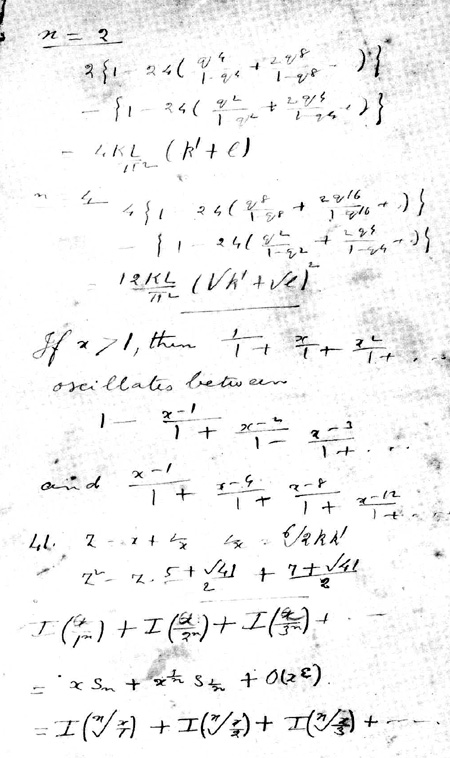 n = 2
2{1 - 24(q^4/(1-q^4) + 2q^8/(1-q^8) ..)}
- {1 - 24(q^2/(1-q^2) + 2q^4/(1-q^4) ..)}
= 4KL/π^2 (k'l' + l)
n = 4
4{1 - 24(q^8/(1-q^8) + 2q^16/(1-q^16) + ..)}
- {1 - 24(q^2/(1-q^2) + 2q^4/(1-q^4) + ..)}
= 12KL/π^2 (√k' + √l)^2
If x > 1, then 1/1 + x/1 + x^2/1 + ...
oscillates between
1 - x-1/1 + x-2/1 - x-3/1 + ...
and x-1/1 + x-4/1 + x-8/1 + x-12/1 + ...
41. z = x + 1/x
z^2 - z. (5+√41)/2 + (7+√41)/2
I(x/1^n) + I(x/2^n) + I(x/3^n) + ...
= x S_n + x^(1/n) S_(1/n) + O(x^ε).
= I(ⁿ√(x/1)) + I(ⁿ√(x/2)) + I(ⁿ√(x/3)) + ....